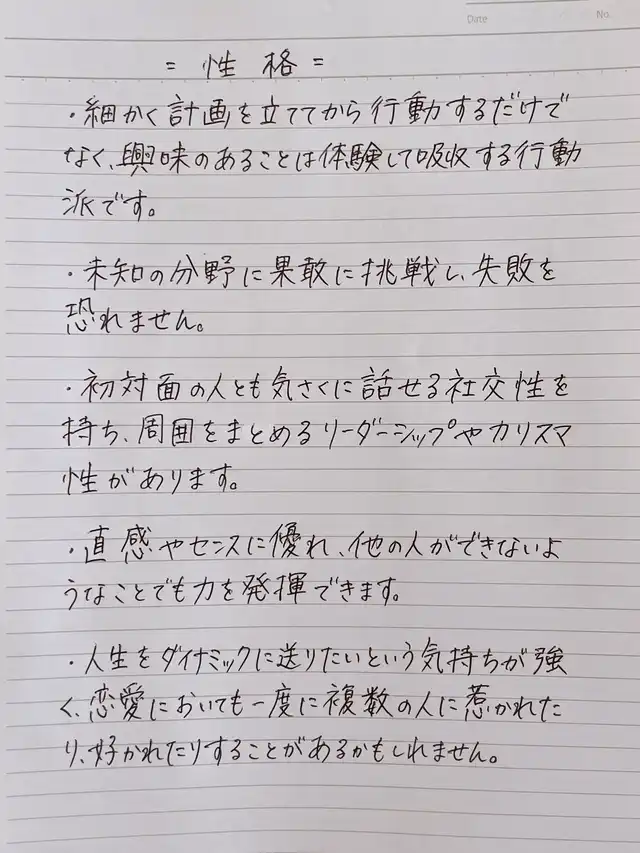 Date
No.
= 性格 =
・細かく計画を立ててから行動するだけで
なく、興味のあることは体験して吸収する行動
派です。
・未知の分野に果敢に挑戦し、失敗を
恐れません。
・初対面の人とも気さくに話せる社交性を
持ち、周囲をまとめるリーダーシップやカリスマ
性があります。
・直感やセンスに優れ、他の人ができないよ
うなことでも力を発揮できます。
・人生をダイナミックに送りたいという気持ちが強
く、恋愛においても一度に複数の人に惹かれた
り、好かれたりすることがあるかもしれません。